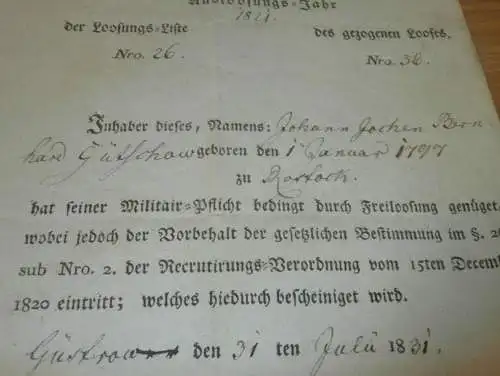 Ausloosungs-Jahr
1821.
der Loosungs-Liste des gezogenen Looses,
Nro. 26. Nro. 36.
Inhaber dieses, Namens: Johann Jochen Bern
hard Gütschow geboren den 1 Januar 1797
zu Rostock.
hat seiner Militair-Pflicht bedingt durch Freiloosung genüget,
wobei jedoch der Vorbehalt der gesetzlichen Bestimmung im §. 2
sub Nro. 2. der Recrutirungs-Verordnung vom 15ten Decem
1820 eintritt; welches hiedurch bescheiniget wird.
Güstrow den 31 ten Julü 1831.